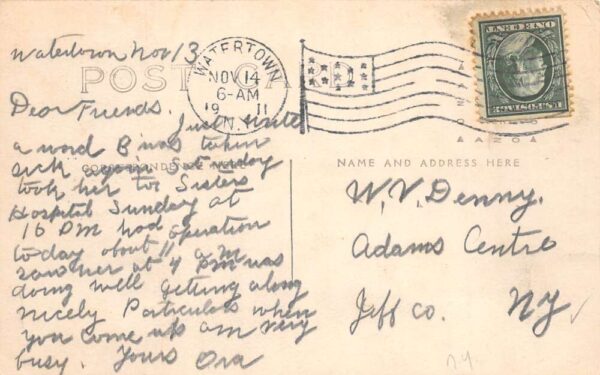 Watertown Nov 13
POST CARD
WATERTOWN
NOV 14
6-AM
19 11
N.Y.
ONE CENT
U.S. POSTAGE
Dear Friends.
Just write
a word B was taken
sick again Saturday
CORRESPONDENCE HERE
took her to Sisters
Hospital Sunday at
10 PM had operation
to day about 11 a m
saw her at 4 PM was
doing well getting along
nicely Particulars when
you come up am very
busy. Yours Ora
NAME AND ADDRESS HERE
W. V. Denny.
Adams Centre
Jeff Co. NY
n.y.